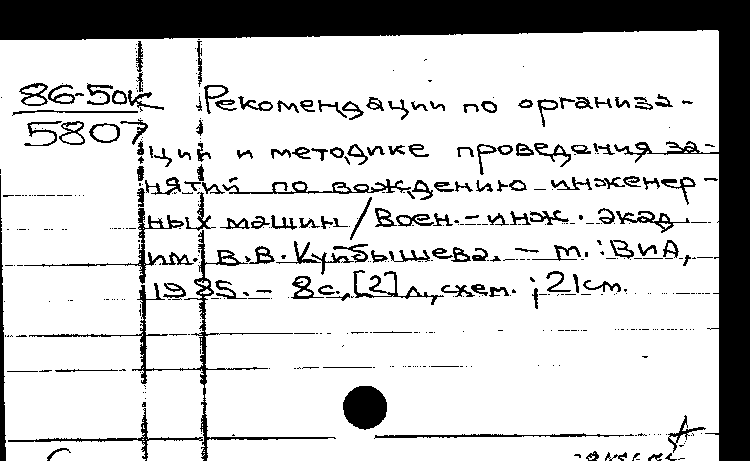 86-5ок Рекомендации по организа-
5807
ции и методике проведения за-
нятий по вождению инженер-
ных машин / Воен.-инж. акад.
им. В.В. Куйбышева. – М. : ВИА,
1985. – 8 с., [2] л., схем. ; 21 см.